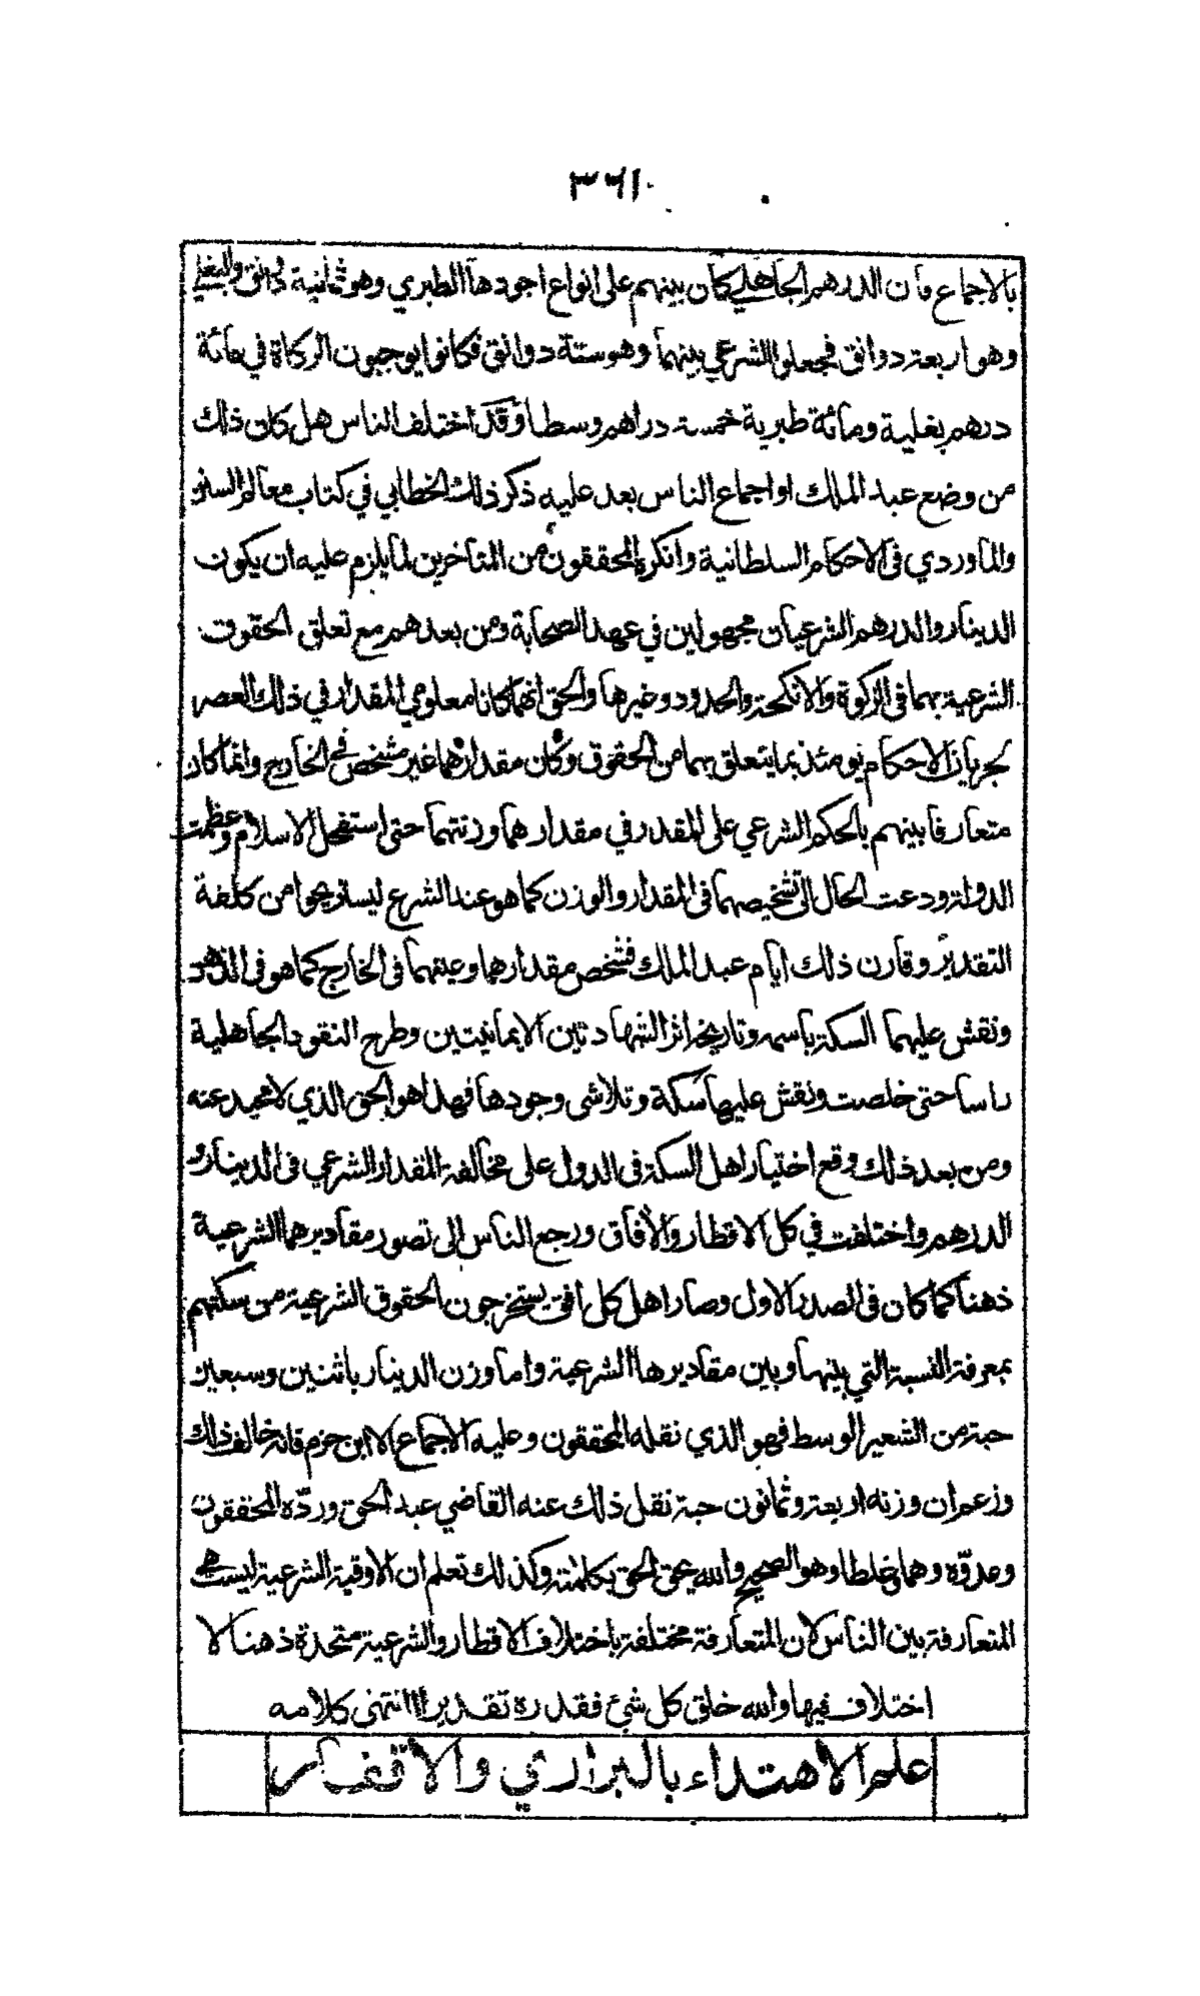 ٣٦١
بالاجماع فان الدرهم الجاهلي كان بينهم على انواع اجودها الطبري وهو ثمانية دوانق والبغلي
وهو اربعة دوانق فجعلوا الشرعي بينهما وهو ستة دوانق فكانوا يوجبون الزكاة في مائة
درهم بغلية ومائة طبرية خمسة دراهم وسطا وقد اختلف الناس هل كان ذلك
من وضع عبد الملك او اجماع الناس بعد عليه ذكر ذلك الخطابي في كتاب معالم السنن
والماوردي في الاحكام السلطانية وانكره المحققون من المتأخرين لما يلزم عليه ان يكون
الدينار والدرهم الشرعيان مجهولين في عهد الصحابة ومن بعدهم مع تعلق الحقوق
الشرعية بهما في الزكوة والانكحة والحدود وغيرها والحق انهما كانا معلومي المقدار في ذلك العصر
لجريان الاحكام يومئذ بما يتعلق بهما من الحقوق وكان مقدارهما غير مشخص في الخارج وانما كان
متعارفا بينهم بالحكم الشرعي على المقدر في مقدارهما وزنتهما حتى استفحل الاسلام وعظمت
الدولة ودعت الحال الى تشخيصهما في المقدار والوزن كما هو عند الشرع ليستريحوا من كلفة
التقدير وقارن ذلك ايام عبد الملك فشخص مقدارهما وعينهما في الخارج كما هو في الذهن
ونقش عليهما السكة باسمه وتاريخه اثر الشهادتين الايمانيتين وطرح النقود الجاهلية
راسا حتى خلصت ونقش عليها سكة وتلاشى وجودها فهذا هو الحق الذي لا محيد عنه
ومن بعد ذلك وقع اختيار اهل السكة في الدول على مخالفة المقدار الشرعي في الدينار و
الدرهم واختلفت في كل الاقطار والآفاق ورجع الناس الى تصور مقاديرهما الشرعية
ذهنا كما كان في الصدر الاول وصار اهل كل افق يستخرجون الحقوق الشرعية من سكتهم
بمعرفة النسبة التي بينها وبين مقاديرها الشرعية واما وزن الدينار باثنين وسبعين
حبة من الشعير الوسط فهو الذي نقله المحققون وعليه الاجماع الا ابن حزم فانه خالف ذلك
وزعم ان وزنه اربعة وثمانون حبة نقل ذلك عنه القاضي عبد الحق وردّه المحققون
وعدوّه وهما وغلطا وهو الصحيح والله يحق الحق بكلماته وكذلك تعلم ان الاوقية الشرعية ليست هي
المتعارفة بين الناس لان المتعارفة مختلفة باختلاف الاقطار والشرعية متحدة ذهنا لا
اختلاف فيها والله خلق كل شيء فقدره تقديرا انتهى كلامه
علم الاهتداء بالبراري والاقفار